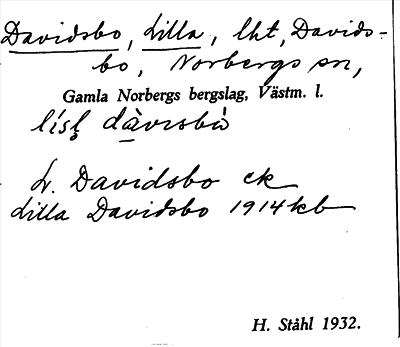 Davidsbo, Lilla, lht, Davids-
bo, Norbergs sn,
Gamla Norbergs bergslag, Västm. l.
L. Davidsbo ek
Lilla Davidsbo 1914 kb
H. Ståhl 1932.